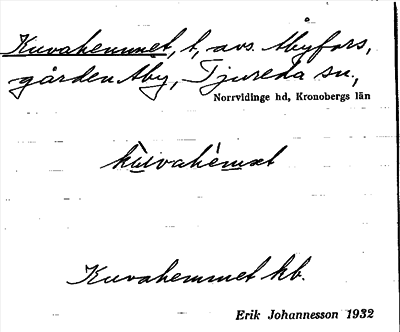 Kuvahemmet, t, avs. Åbyfors,
gården Åby, Tjureda sn.,
Norrvidinge hd, Kronobergs län
Kuvahemmet kb.
Erik Johannesson 1932